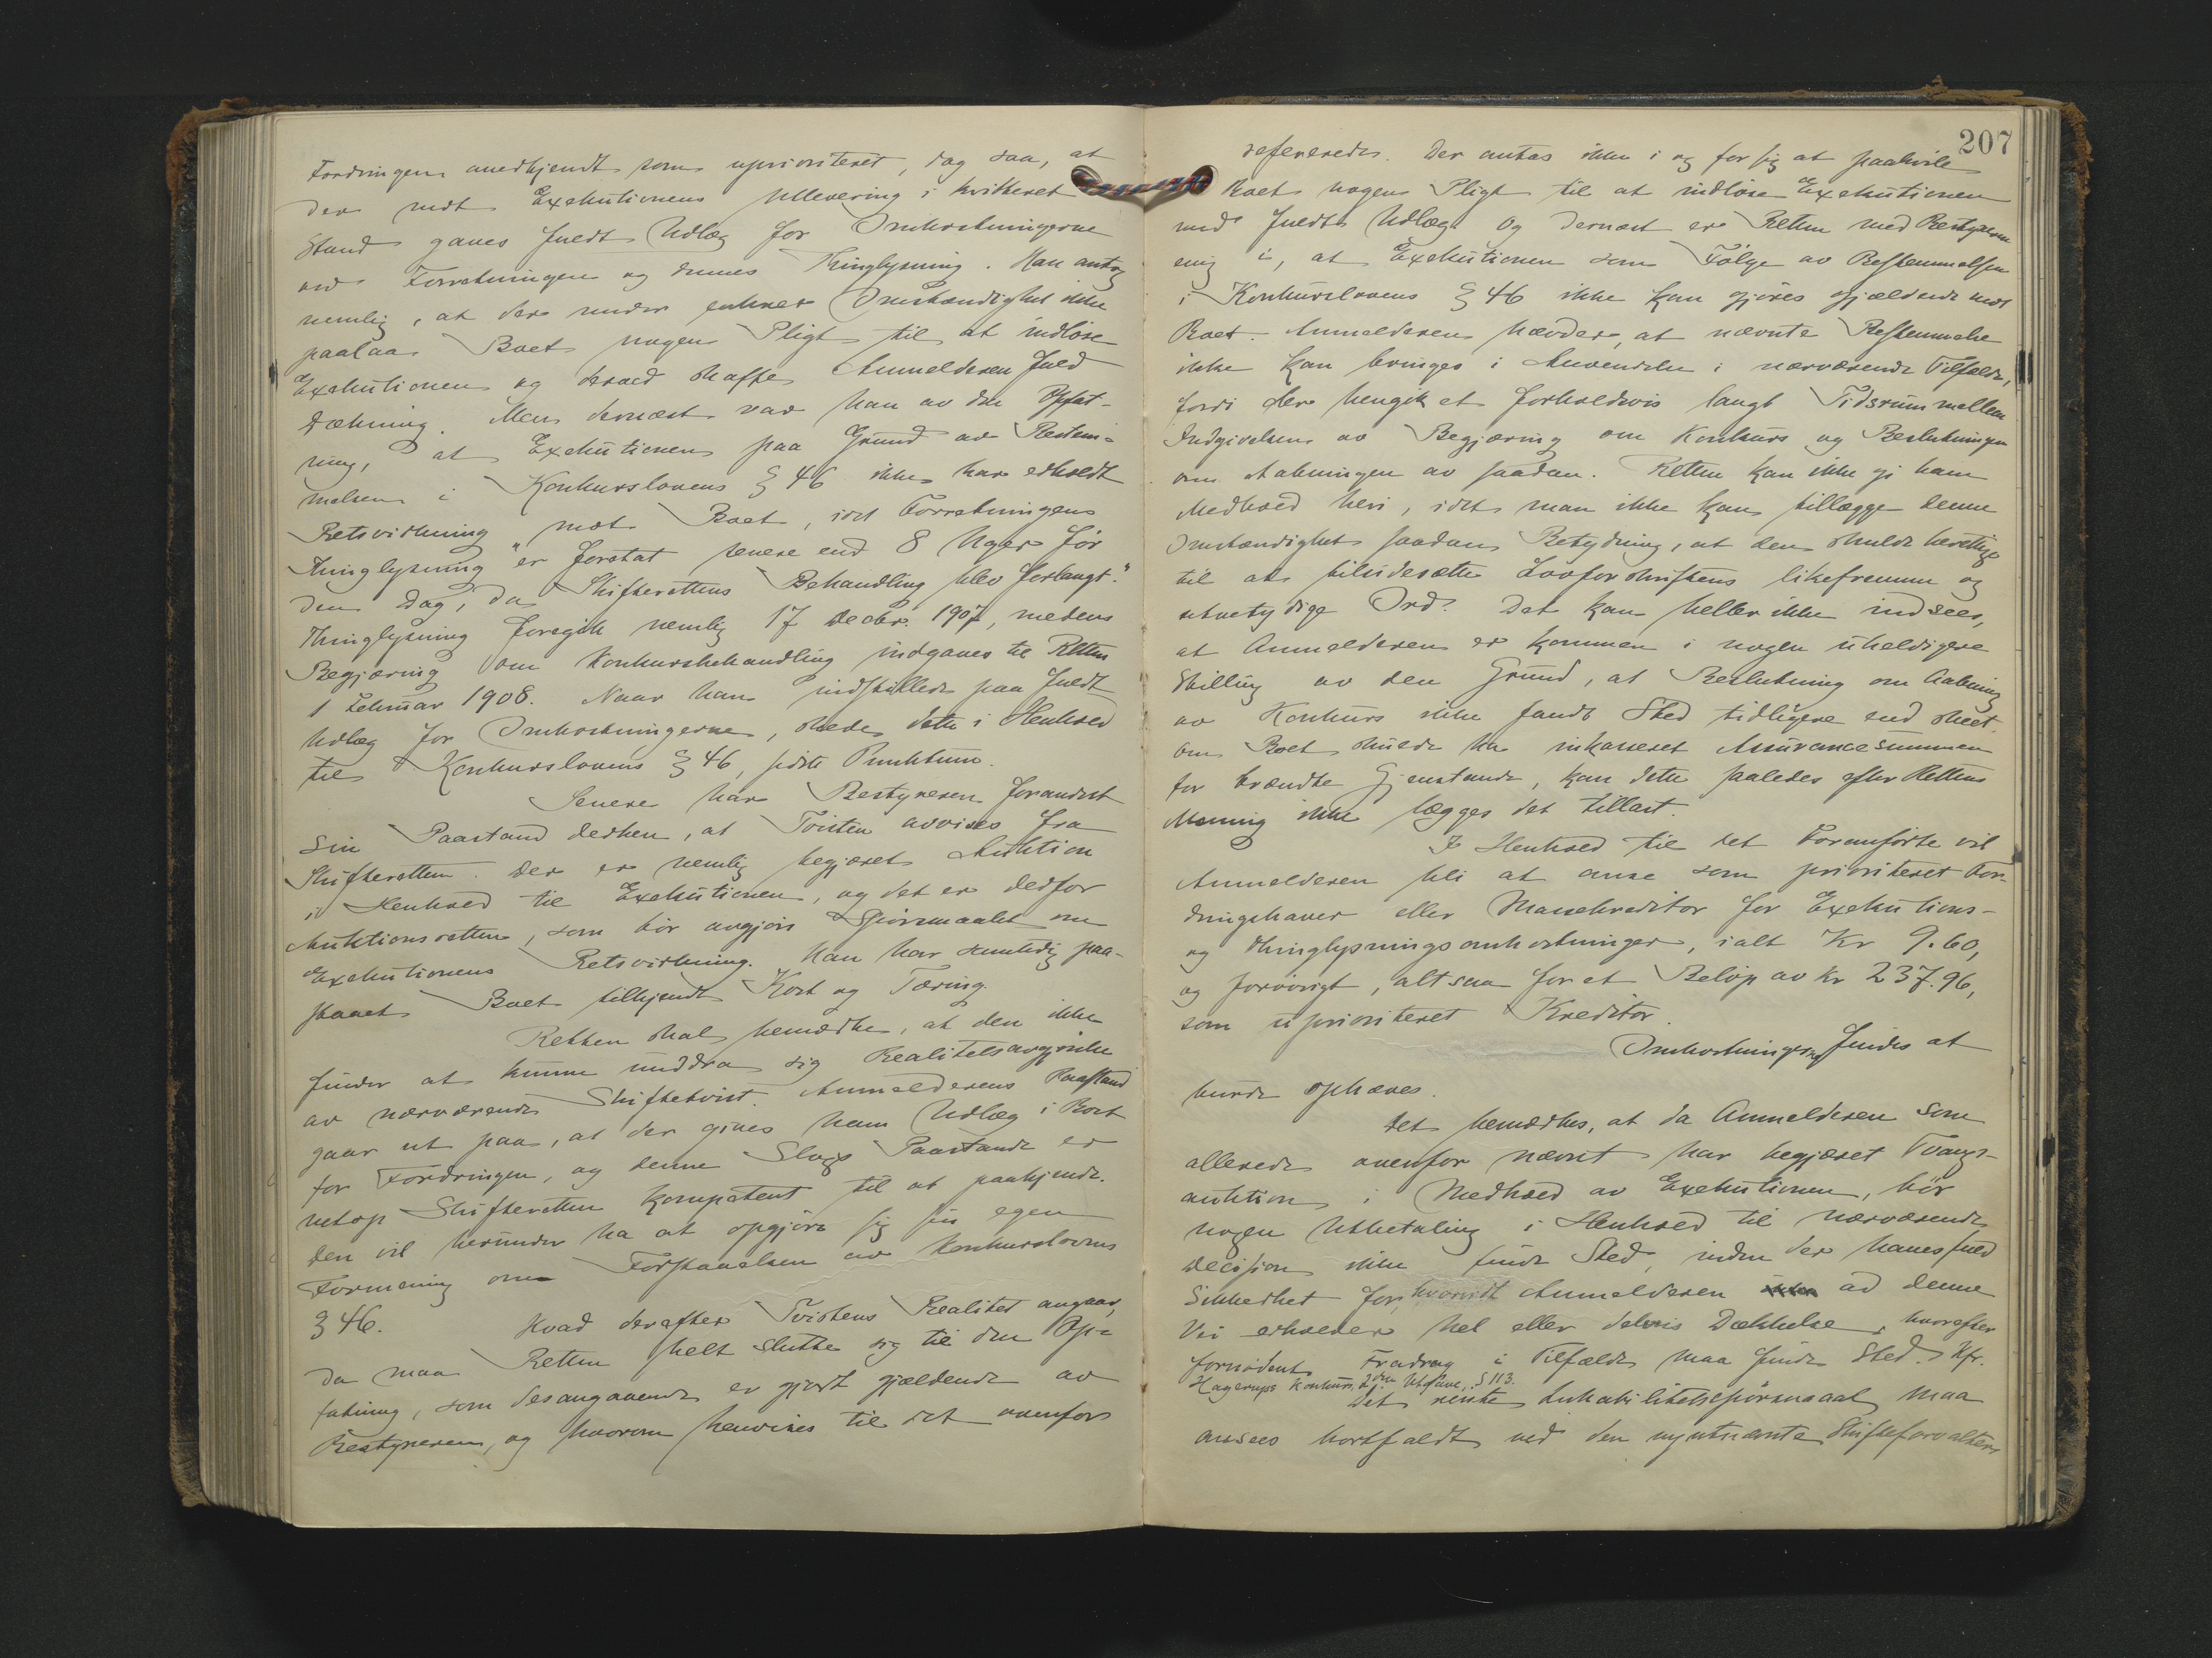 Fordringen anerkjendt som uprioriteret, dog saa, at
der mot Exekutionens Utlevering i kvitteret
Stand gaves fuldt Utlæg for Omkostningerne
ved Forretningen og dennes Thinglysning. Han antog
nemlig, at der under enhver Omstændighet ikke
paalaa Boet nogen Pligt til at indløse
Exekutionen og derved skaffe Anmelderen fuld
Dækning. Men dernæst var han av den Opfat-
ning, at Exekutionen paa Grund av Bestem-
melsen i Konkurslovens § 46 ikke har erholdt
Retsvirkning mot Boet, idet Forretningens
Thinglysning "er foretat senere end 8 Uger før
den Dag, da Skifterettens Behandling blev forlangt."
Thinglysning foregik nemlig 17 Decbr. 1907, medens
Begjæring om Konkursbehandling indgaves til Retten
1 Februar 1908. Naar han indstillede paa fuldt
Utlæg for Omkostningerne, skede dette i Henhold
til Konkurslovens § 46, sidste Punktum.
Senere har Bestyreren forandret
sin Paastand derhen, at Tvisten avvises fra
Skifteretten. Der er nemlig begjæret Auktion
i Henhold til Exekutionen, og det er derfor
Auktionsretten, som bør avgjøre Spørsmaalet om
Exekutionens Retsvirkning. Han har samtidig paa-
staaet Boet tilkjendt Kost og Tæring.
Retten skal bemærke, at den ikke
finder at kunne unddra sig Realitetsavgjørelse
av nærværende Skiftetvist. Anmelderens Paastand
gaar ut paa, at der gives ham Utlæg i Boet
for Fordringen, og denne Slags Paastande er
netop Skifteretten kompetent til at paakjende.
Den vil herunder ha at opgjøre sig sin egen
Formening om Forstaaelsen av Konkurslovens
§ 46.
Hvad derefter Tvistens Realitet angaar,
da maa Retten helt slutte sig til den Op-
fatning, som desangaaende er gjort gjældende av
Bestyreren, og hvorom henvises til det ovenfor
207
refererede. Der antas ikke i og for sig at paahvile
Boet nogen Pligt til at indløse Exekutionen
med fuldt Utlæg. Og dernæst er Retten med Bestyreren
enig i, at Exekutionen som Følge av Bestemmelsen
i Konkurslovens § 46 ikke kan gjøres gjældende mot
Boet. Anmelderen hævder, at nævnte Bestemmelse
ikke kan bringes i Anvendelse i nærværende Tilfælde,
fordi der hengik et forholdsvis langt Tidsrum mellem
Indgivelsen av Begjæring om Konkurs og Beslutningen
om Aabningen av saadan. Retten kan ikke gi ham
Medhold heri, idet man ikke kan tillægge denne
Omstændighet saadan Betydning, at den skulde berettige
til at tilsidesætte Lovforskriftens likefremme og
utvetydige Ord. Det kan heller ikke indsees,
at Anmelderen er kommen i nogen uheldigere
Stilling av den Grund, at Beslutning om Aabning
av Konkurs ikke fandt Sted tidligere end skeet.
Om Boet skulde ha inkasseret Assurancesummen
for brændte Gjenstande, kan dette saaledes efter Rettens
Mening ikke lægges det tillast.
I Henhold til det Foranførte vil
Anmelderen bli at anse som prioriteret For-
dringshaver eller Massekreditor for Exekutions-
og Thinglysningsomkostninger, ialt Kr 9.60,
og forøvrigt, altsaa for et Beløp av kr 237.96,
som uprioriteret Kreditor.
Omkostningerne findes at
burde ophæves.
Det bemærkes, at da Anmelderen som
allerede ovenfor nævnt har begjæret Tvangs-
auktion i Medhold av Exekutionen, bør
nogen Utbetaling i Henhold til nærværende
Decision ikke finde Sted, inden der haves fuld
Sikkerhet for, hvorvidt Anmelderen ad denne
Vei erholder hel eller delvis Dækkelse, hvorefter
fornødent Fradrag i Tilfælde maa finde Sted. Kfr.
Hagerups Konkurs, 2den Utgave, § 113.
Det reiste Inhabilitetsspørsmaal maa
ansees bortfaldt ved den nyutnævnte Skifteforvalters